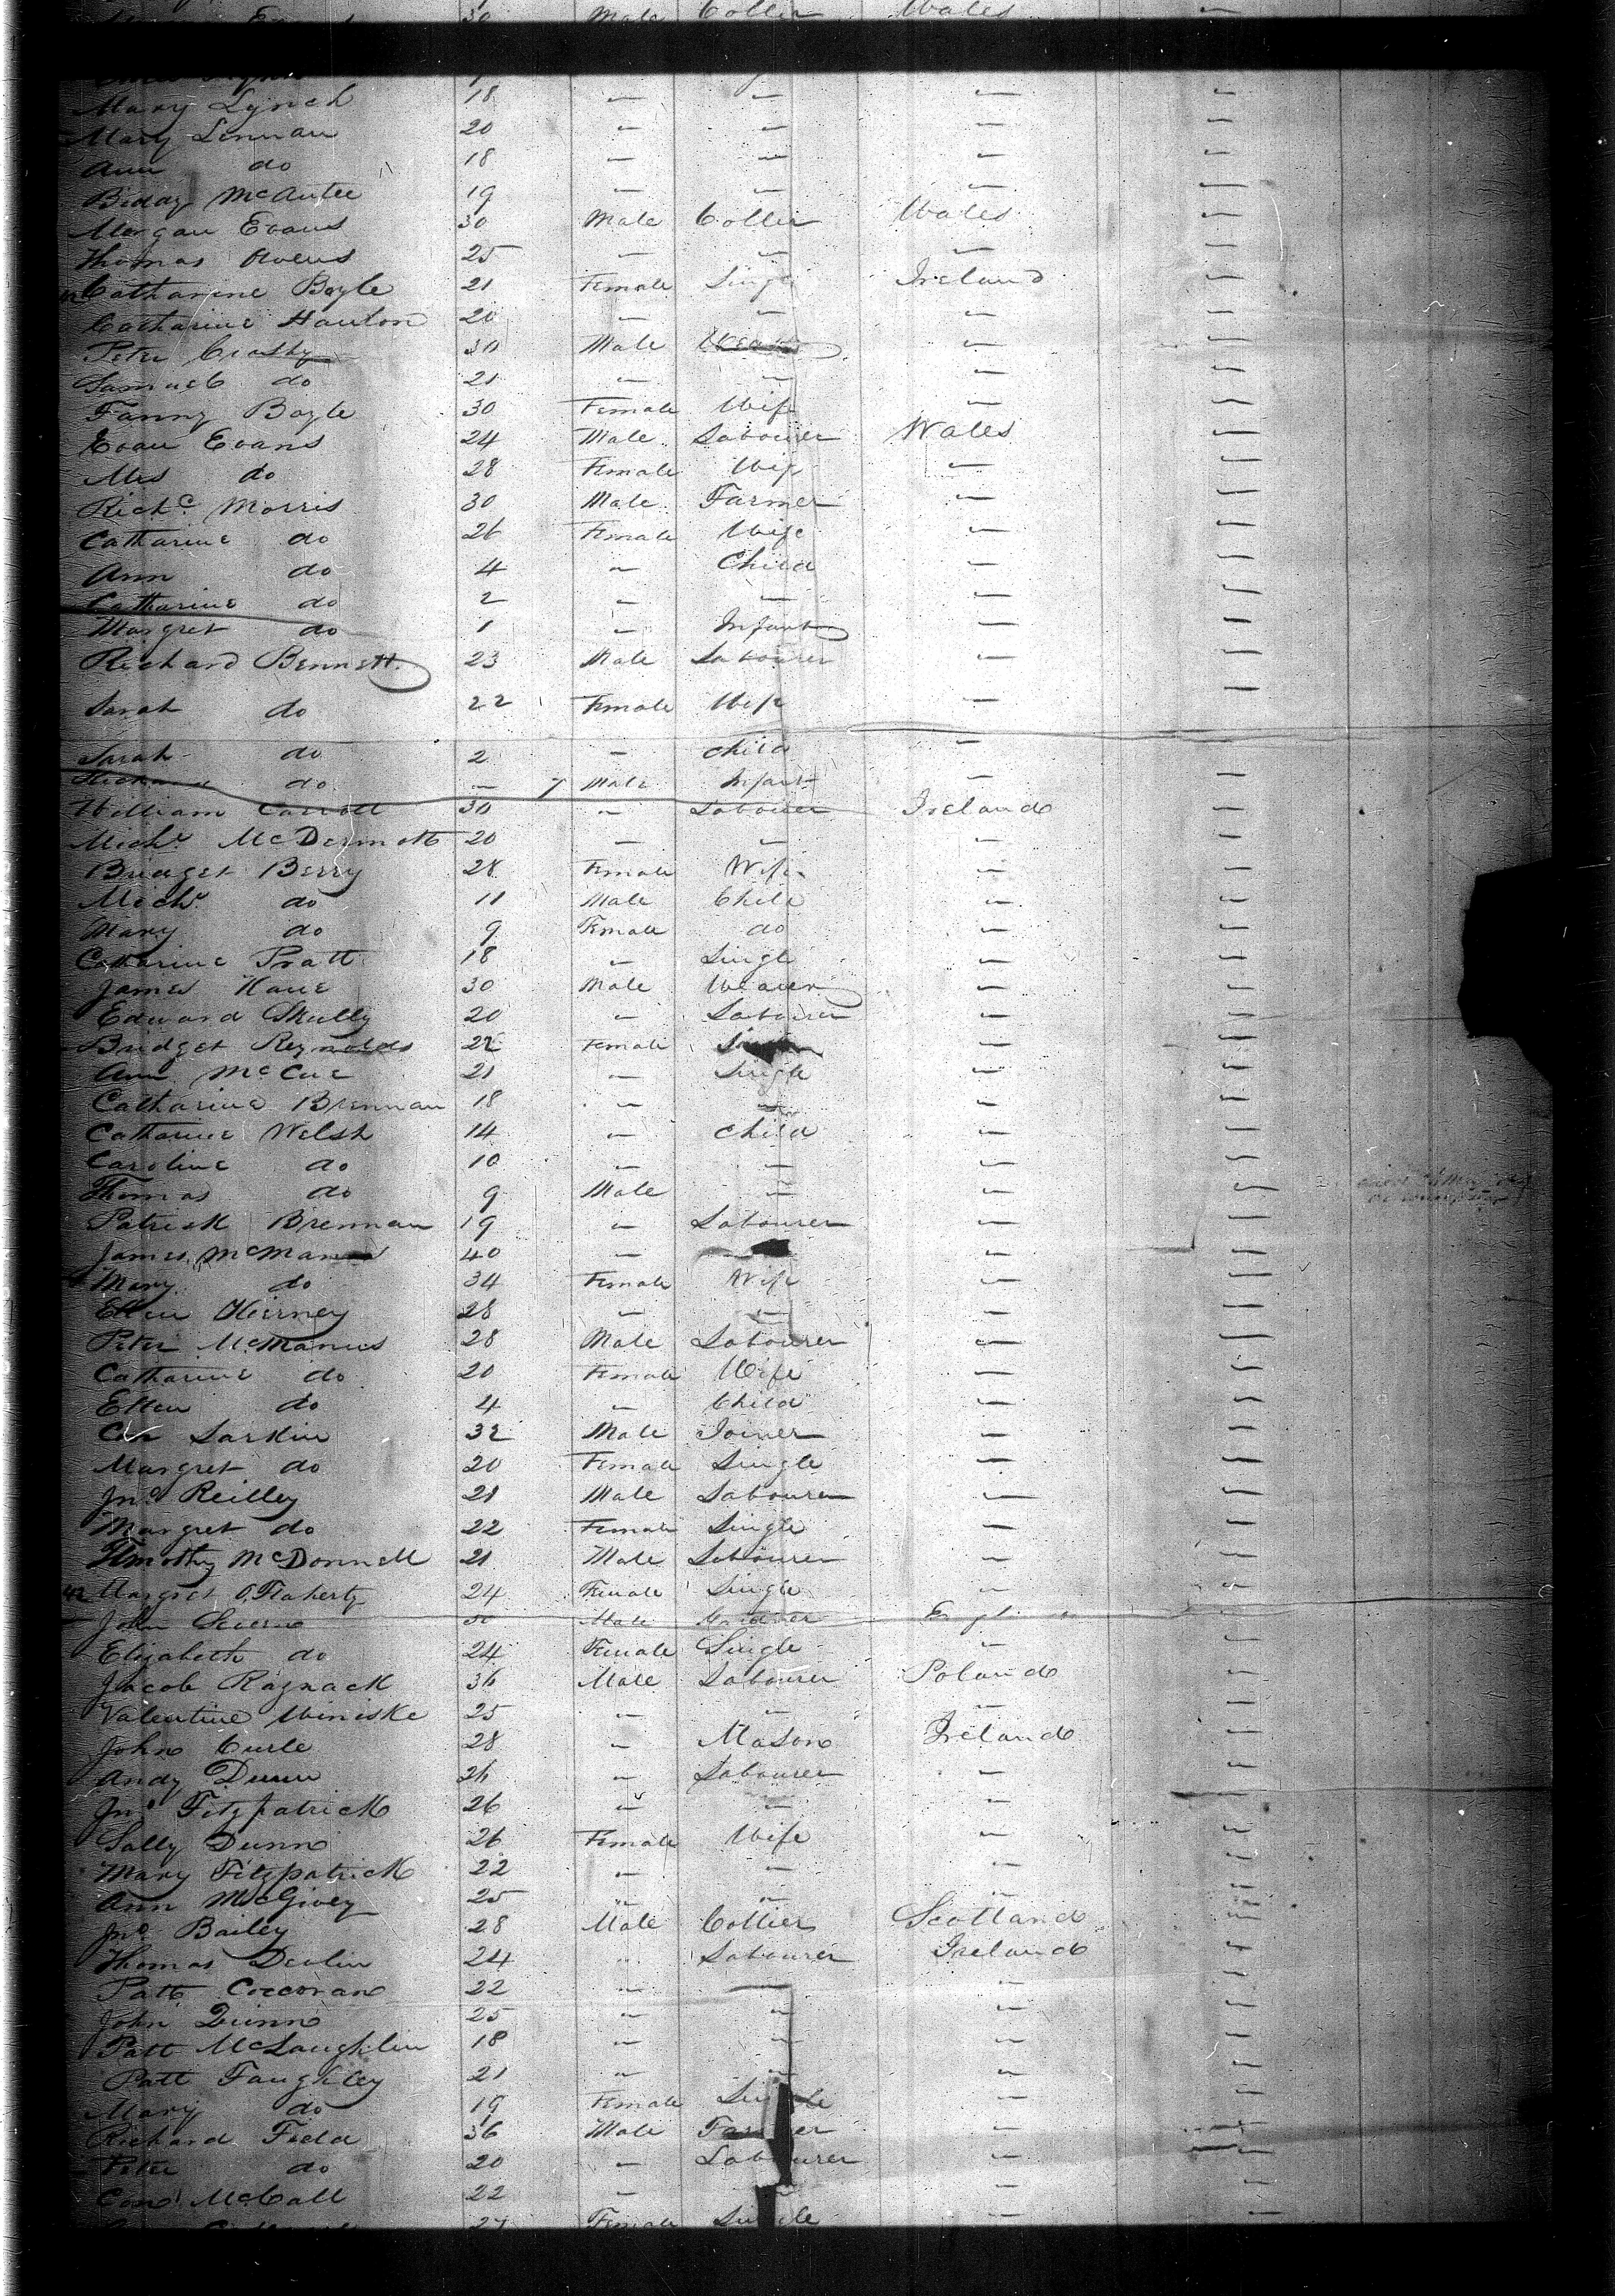 30 Male Collier Wales —
Mary Lynch 18 — — — —
Mary Lennan 20 — — — —
Ann do 18 — — — —
Biddy McAntee 19 — — — —
Morgan Evans 30 Male Collier Wales —
Thomas Owens 25 — — — —
Catharine Boyle 21 Female Single Ireland —
Catharine Hanlon 20 — — — —
Peter Crosby 30 Male — —
Samuel do 21 — — — —
Fanny Boyle 30 Female Wife — —
Evan Evans 24 Male Labourer Wales —
Mrs do 28 Female Wife — —
Richd Morris 30 Male Farmer — —
Catharine do 26 Female Wife — —
Ann do 4 — Child — —
Catharine do 2 — — — —
Margret do 1 — Infant — —
Richard Bennett 23 Male Labourer — —
Sarah do 22 Female Wife — —
Sarah do 2 — Child — —
Richard do — 7 Male Infant — —
William Carroll 30 — Labourer Ireland —
Michl McDermott 20 — — — —
Bridget Berry 28 Female Wife — —
Michl do 11 Male Child — —
Mary do 9 Female do — —
Catharine Pratt 18 — Single — —
James Kane 30 Male Weaver — —
Edward Skully 20 — Labourer — —
Bridget Reynolds 22 Female — —
Ann McCue 21 — Single — —
Catharine Brennan 18 — — — —
Catharine Welsh 14 — Child — —
Caroline do 10 — — — —
Thomas do 9 Male — — —
Patrick Brennan 19 — Labourer — —
James McManus 40 — — —
Mary do 34 Female Wife — —
Ellen Kierney 28 — — — —
Peter McManus 28 Male Labourer — —
Catharine do 20 Female Wife — —
Ellen do 4 — Child — —
Larkin 32 Male Joiner — —
Margret do 20 Female Single — —
Jno Reilley 21 Male Labourer — —
Margret do 22 Female Single — —
Timothy McDonnell 21 Male Labourer — —
Margret O'Flaherty 24 Female Single — —
John Male —
Elizabeth do 24 Female Single — —
Jacob Ragnack 36 Male Labourer Poland —
Valentine Winiske 25 — — — —
John Curle 28 — Mason Ireland —
Andy Dunn 26 — Labourer — —
Jno Fitzpatrick 26 — — — —
Sally Dunn 26 Female Wife — —
Mary Fitzpatrick 22 — — — —
Ann McGivey 25 — — — —
Jno Bailey 28 Male Collier Scotland —
Thomas Devlin 24 — Labourer Ireland —
Patt Corcoran 22 — — — —
John Quinn 25 — — — —
Patt McLaughlin 18 — — — —
Patt Faughley 21 — — — —
Mary do 19 Female Single — —
Richard Fedd 36 Male Farmer — —
Peter do 20 — Labourer — —
Con McCall 22 — — — —
27 Female Single — —